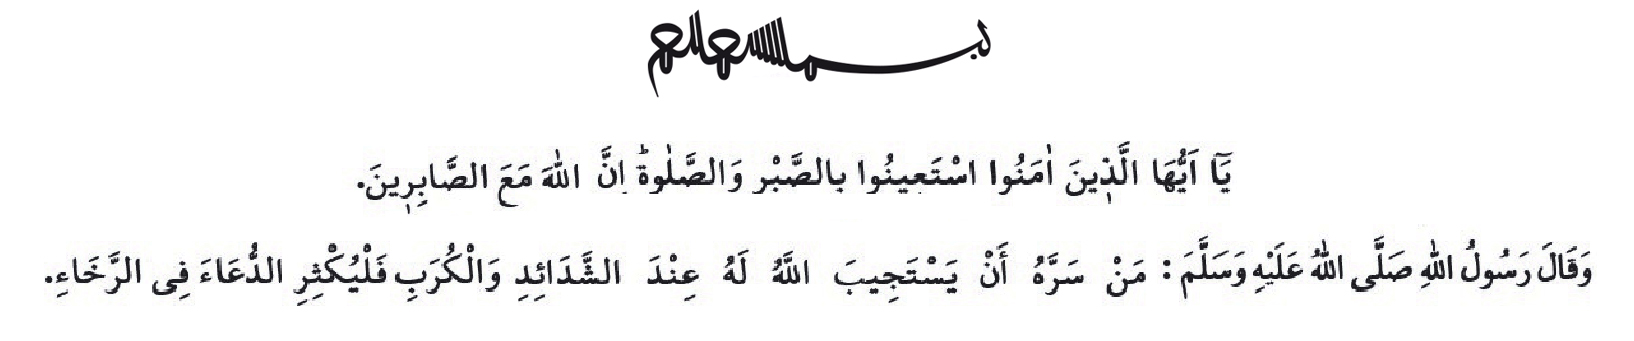 بسم الله الرحمن الرحيم
يَٓا اَيُّهَا الَّذٖينَ اٰمَنُوا اسْتَعٖينُوا بِالصَّبْرِ وَالصَّلٰوةِؕ اِنَّ اللّٰهَ مَعَ الصَّابِرٖينَ.
وَقَالَ رَسُولُ اللّٰهِ صَلَّى اللّٰهُ عَلَيْهِ وَسَلَّمَ: مَنْ سَرَّهُ أَنْ يَسْتَجِيبَ اللَّهُ لَهُ عِنْدَ الشَّدَائِدِ وَالْكُرَبِ فَلْيُكْثِرِ الدُّعَاءَ فِى الرَّخَاءِ.